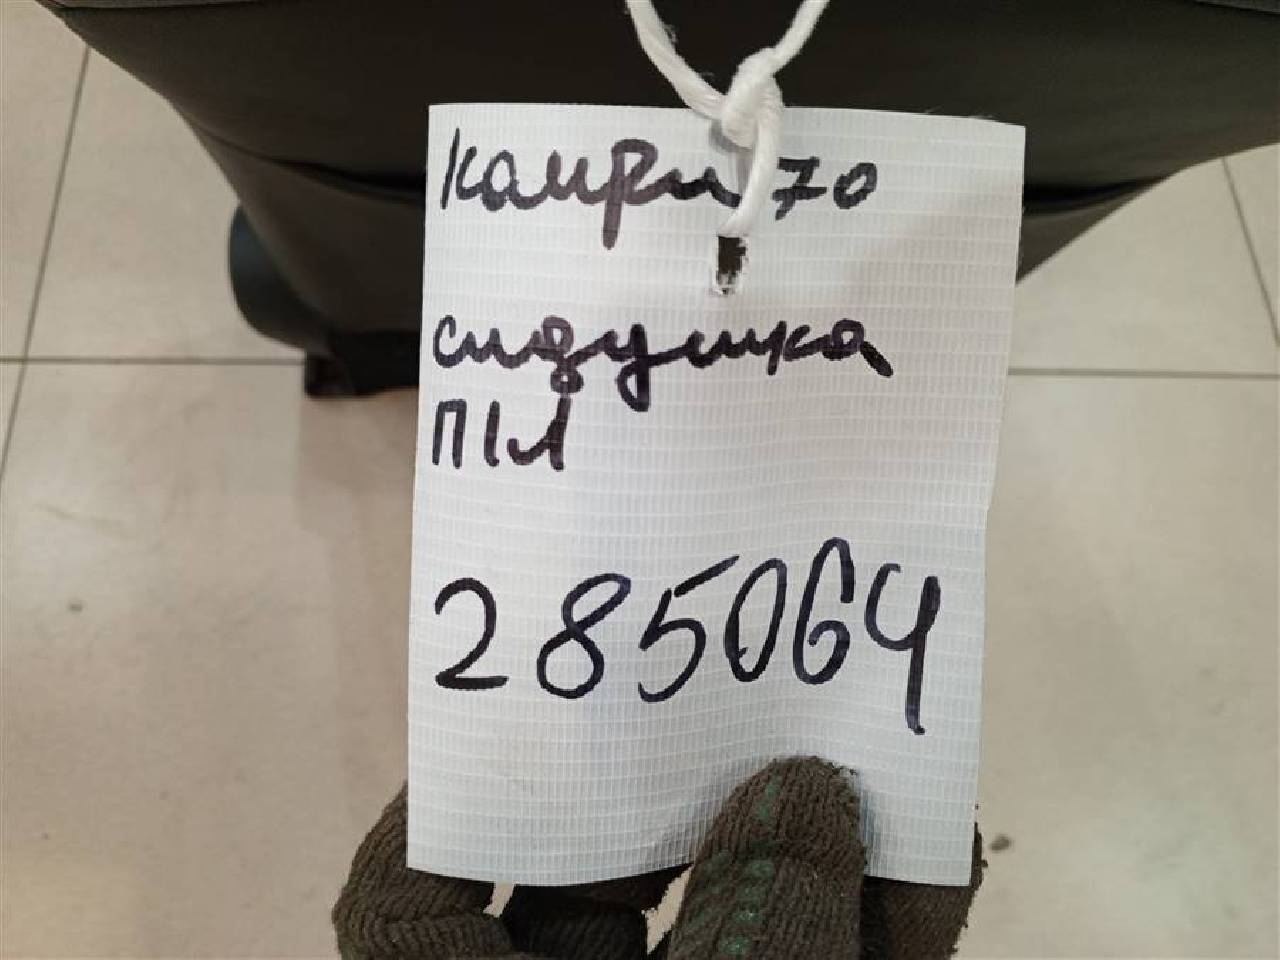 Камри 70
сидушка
П1Л
285064